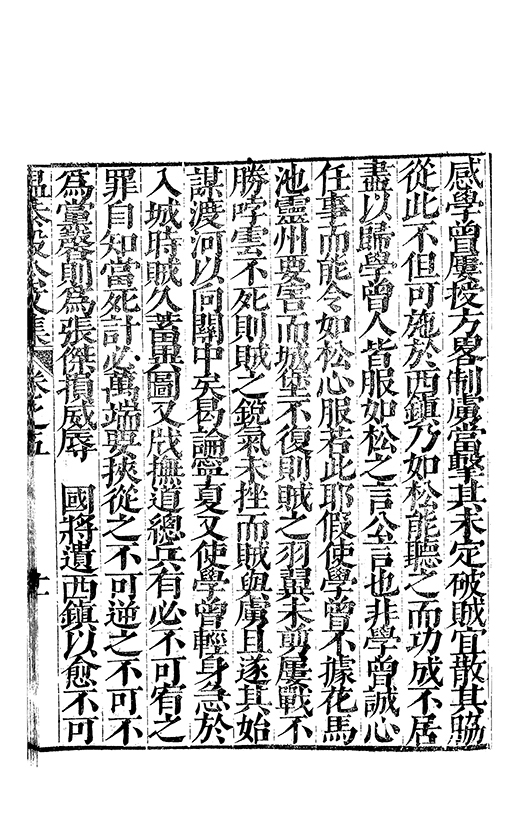 感學曾屢授方畧制虜當擊其未定破賊宜散其脇
從此不但可施於西鎮乃如松能聽之而功成不居
盡以歸學曾人皆服如松之言公言也非學曾誠心
任事而能令如松心服若此耶假使學曾不據花馬
池靈州要害而城堡不復則賊之羽翼未剪屢戰不
勝哱雲不死則賊之銳氣未挫而賊與虜且遂其始
謀渡河以向關中矣曷論寧夏又使學曾輕身急於
入城時賊久蓄異圖又戕撫道總兵有必不可宥之
罪自知當死計必萬端要挾從之不可逆之不可不
為黨馨則為張傑損威辱 國將遺西鎮以愈不可
溫恭毅公文集 卷之五 十一